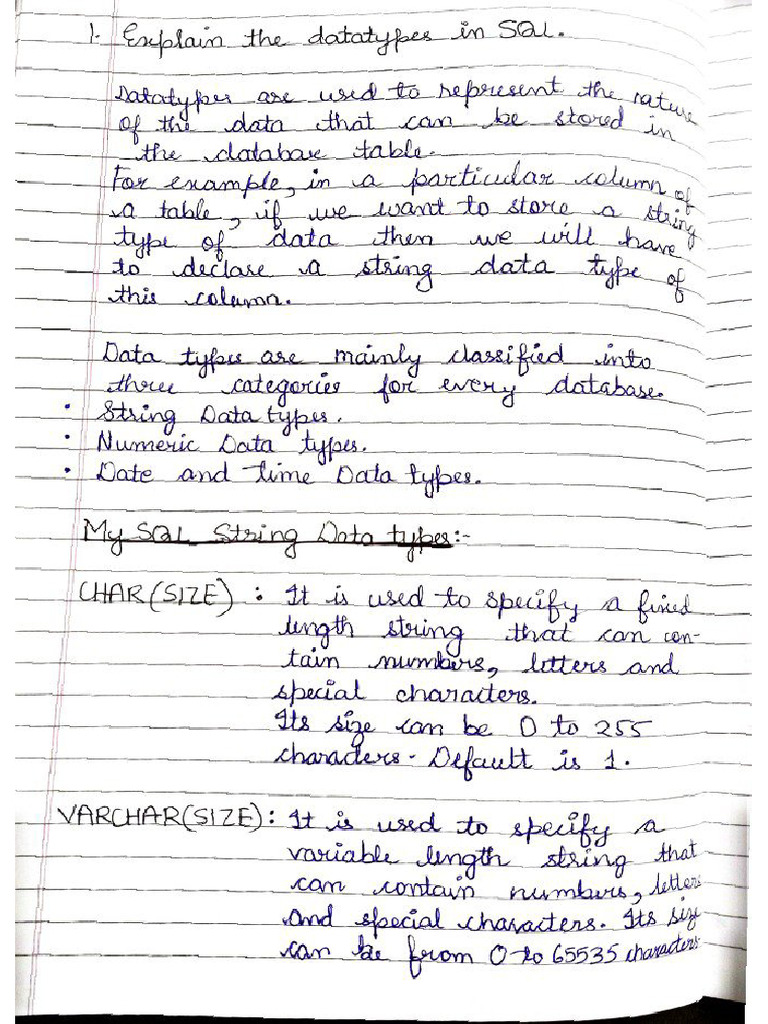 1. Explain the datatypes in SQL.
Datatypes are used to represent the nature
of the data that can be stored in
the database table.
For example, in a particular column of
a table, if we want to store a string
type of data then we will have
to declare a string data type of
this column.
Data types are mainly classified into
three categories for every database.
• String Data types.
• Numeric Data types.
• Date and time Data types.
My SQL String Data types:-
CHAR(SIZE) : It is used to specify a fixed
length string that can con-
tain numbers, letters and
special characters.
Its size can be 0 to 255
characters. Default is 1.
VARCHAR(SIZE): It is used to specify a
variable length string that
can contain numbers, letters
and special characters. Its size
can be from 0 to 65535 characters.